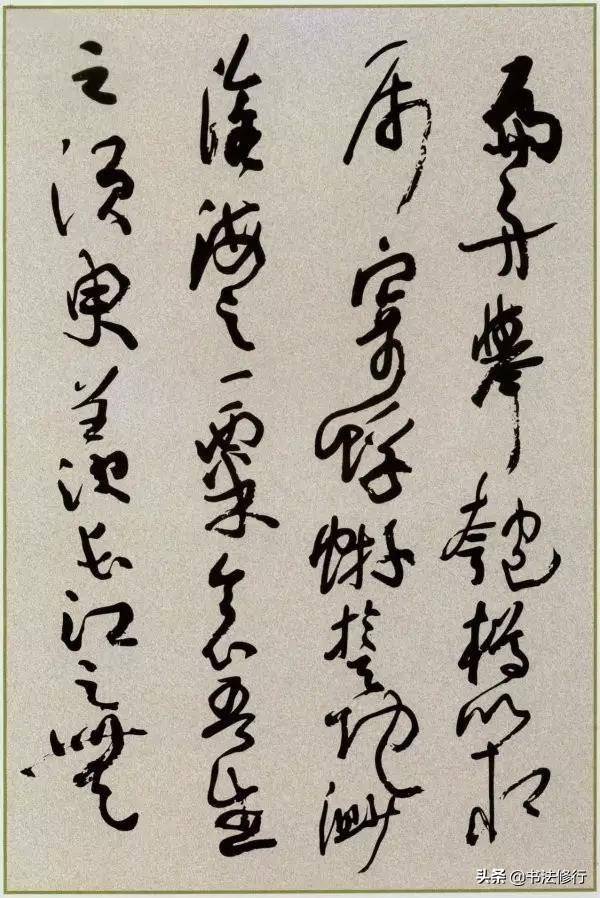 扁舟舉匏樽以相
属寄蜉蝣於天地渺
滄海之一粟哀吾生
之須臾羨長江之無
头条 @书法修行